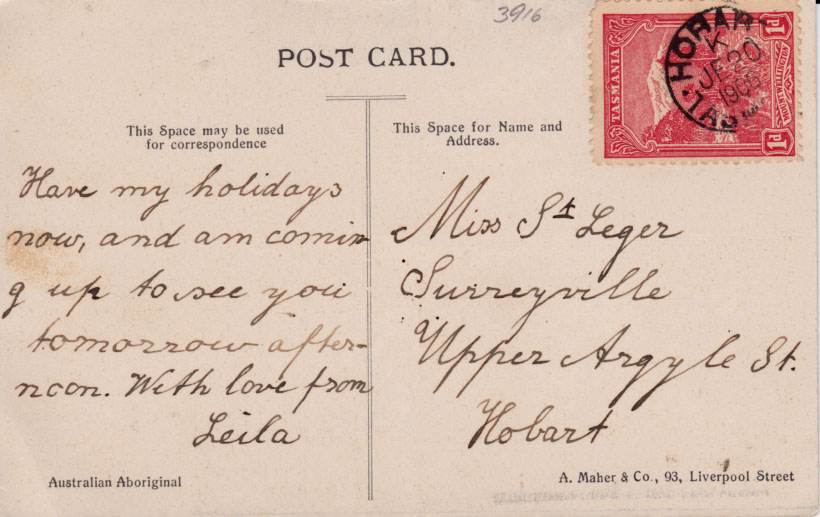 3916
POST CARD.
This Space may be used
for correspondence
This Space for Name and
Address.
TASMANIA
1d
1d
MOUNT WELLINGTON
HOBAR
K
JE 20
TAS
Have my holidays
now, and am comin
g up to see you
tomorrow after-
noon. With love from
Leila
Miss St Leger
Surreyville
Upper Argyle St.
Hobart
Australian Aboriginal
A. Maher & Co., 93, Liverpool Street